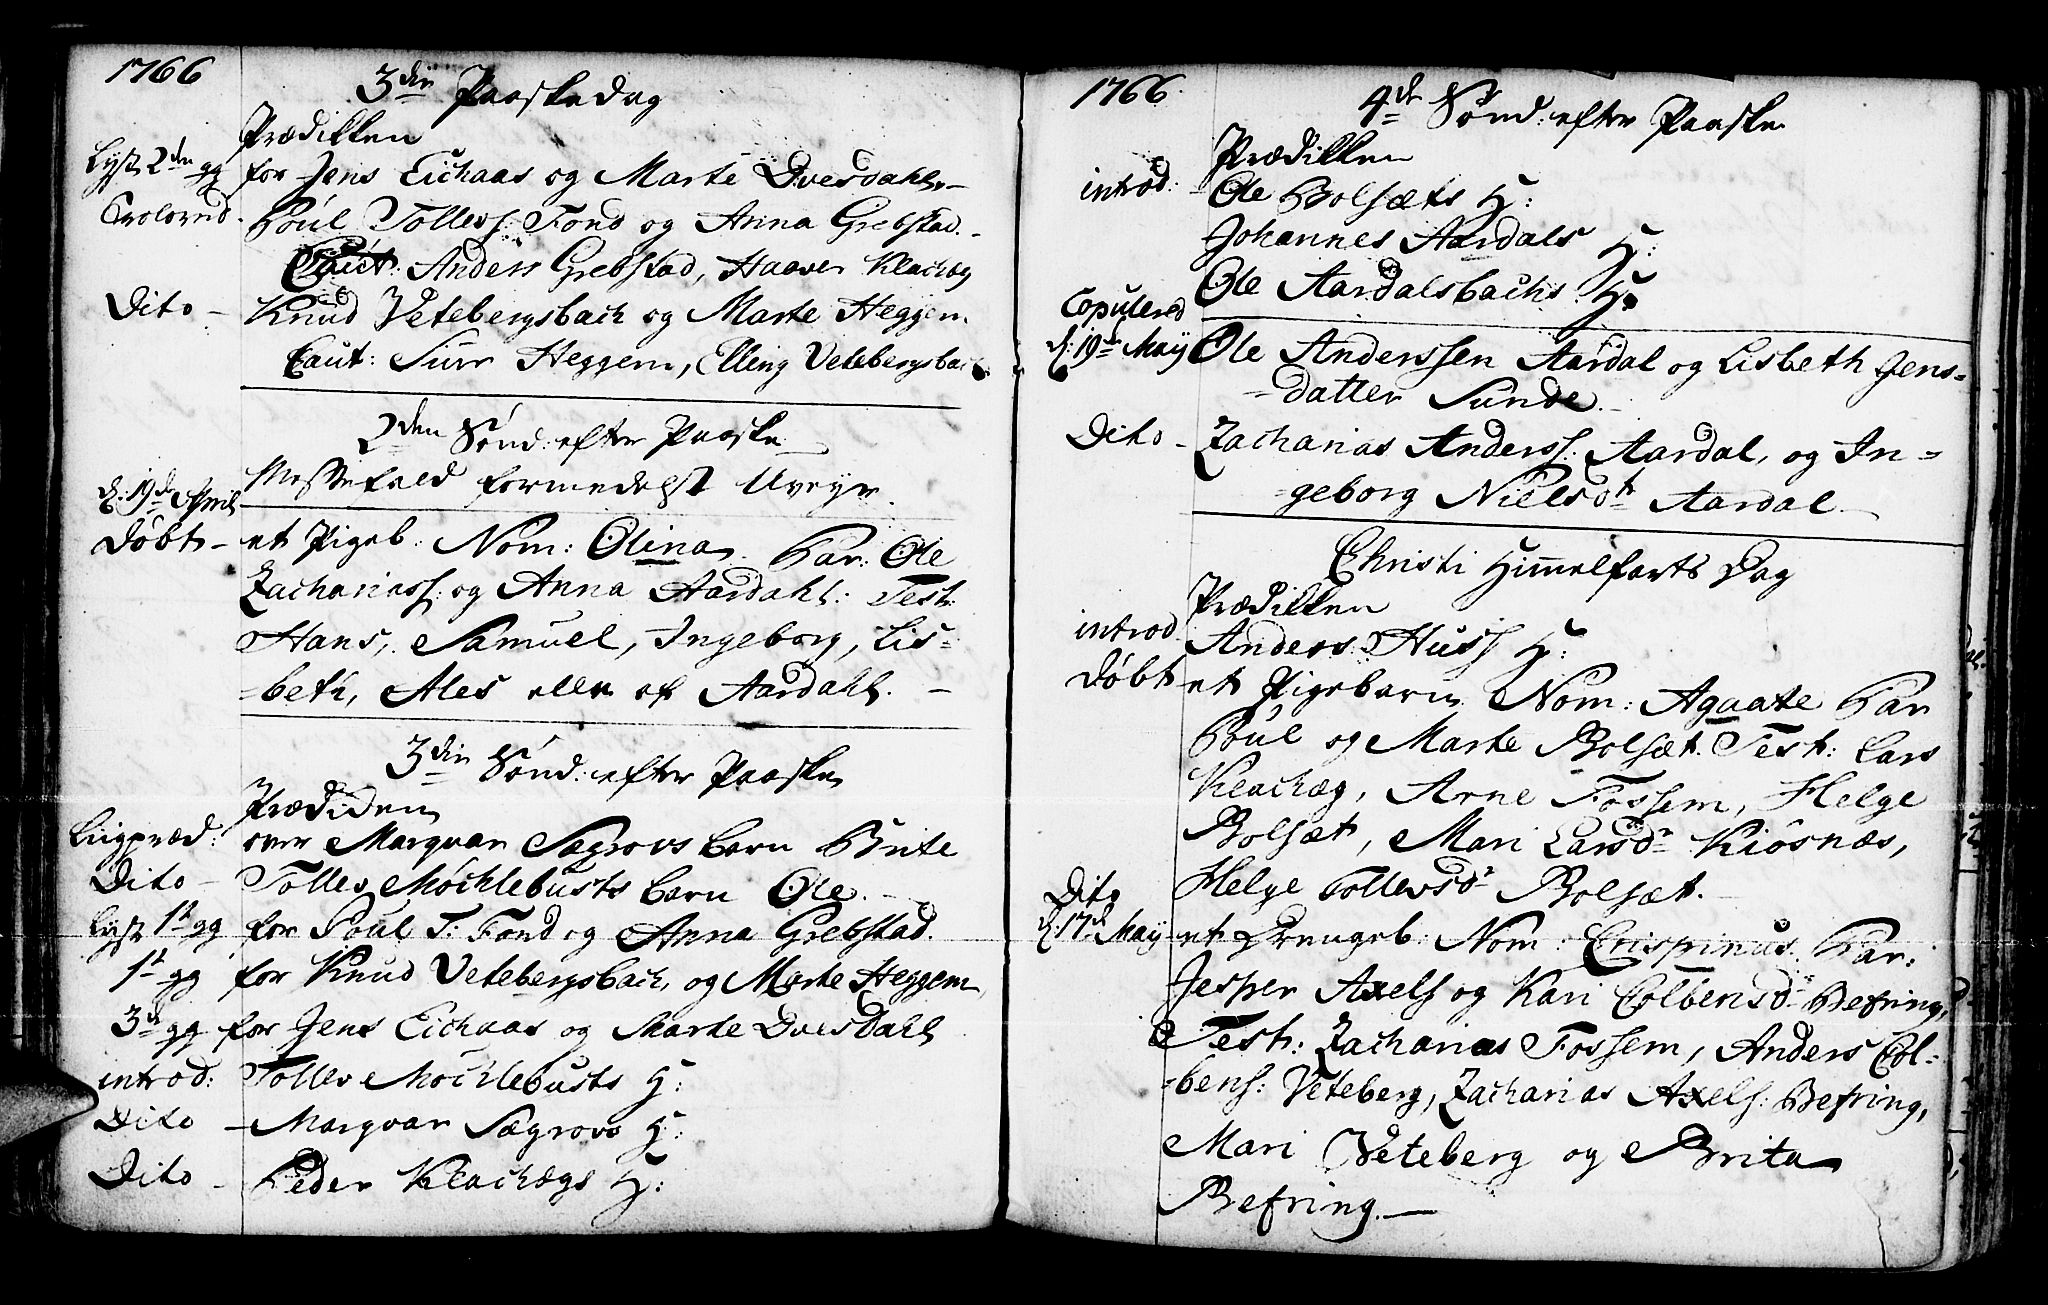 1766
3die Paaskedag
Prædikken
Lyst 2den gg for Jens Eichaas og Marte Dvesdahl.
Troloved. Poul Tollevs: Fond og Anna Grebstad.
Caut: Anders Grebstad, Haaver Klachæg
Dito - Knud Vetebergsbach og Marte Heggem.
Caut: Siur Heggem, Elling Vetebergsbach
2den Sönd: efter Paaske
Messefald formedelst Uveyr.
d: 19de April
Döbt - et Pigeb: Nom: Olina. Par: Ole
Zachariass: og Anna Aardahl: Test:
Hans, Samuel, Ingeborg, Lis=
=beth, Ales alle af Aardahl. -
3die Sönd: efter Paaske
Prædiken
Liigpræd: over Marqvar Sægrovs barn Brite
Dito - Tollev Möchlebusts barn Ole. -
Lyst 1st gg for Poul T: Fond og Anna Grebstad.
1st gg for Knud Vetebergsbach, og Marte Heggem
3d gg for Jens Eichaas og Marte Dvesdahl
introd: Tollev Möchlebusts H:
Dito - Marqvar Sægrovs H:
Dito - Peder Klachægs H:
1766.
4de Sönd: efter Paaske
Prædikken
introd: - Ole Bolsæts H:
Johannes Aardals H:
Ole Aardalsbachs H:
Copulered
d: 19de Maij Ole Anderssen Aardal og Lisbeth Jens=
=datter Sunde. -
Dito - Zacharias Anderss: Aardal, og In=
=geborg Nielsdtr Aardal. -
Christi Himmelfarts Dag
Prædikken
introd Anders Huss H:
Döbt et Pigebarn Nom: Agaate Par
Poul og Marte Bolsæt. Test: Lars
Klachæg, Arne Fossem, Helge
Bolsæt, Mari Larsdr Kiösnæs,
Helge Tollevsdr Bolsæt. -
Dito
d: 17de Maij - et Drengeb: Nom: Crispinus. Par:
Jesper Axels og Kari Colbensdr Befring,
Test: Zacharias Fossem, Anders Col=
=bens: Veteberg, Zacharias Axels: Befring,
Mari Veteberg og Brita
Befring. -